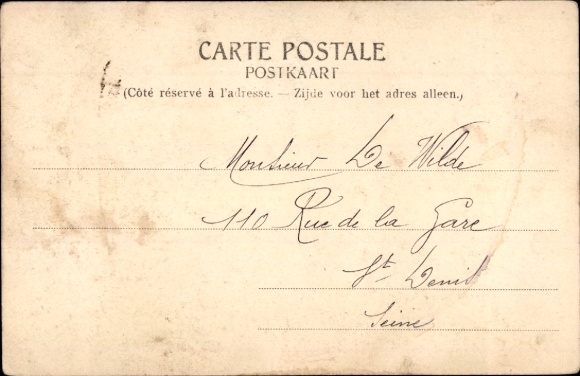 CARTE POSTALE
POSTKAART
(Côté réservé à l'adresse. — Zijde voor het adres alleen.)
Monsieur De Wilde
110 Rue de la Gare
St. Denis
Seine